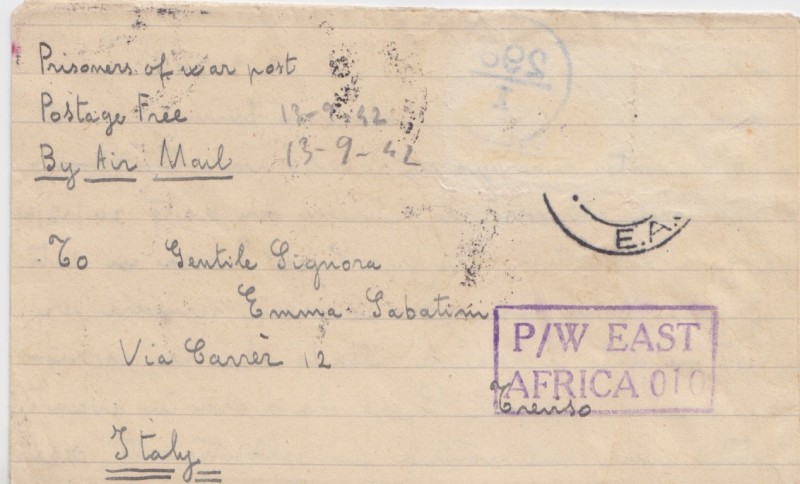 Prisoners of war post
Postage Free 13-9-42
By Air Mail 13-9-42
E.A.
To Gentile Signora
Emma Sabatini
Via Carrèr 12
P/W EAST
AFRICA 010
Trenso
Italy